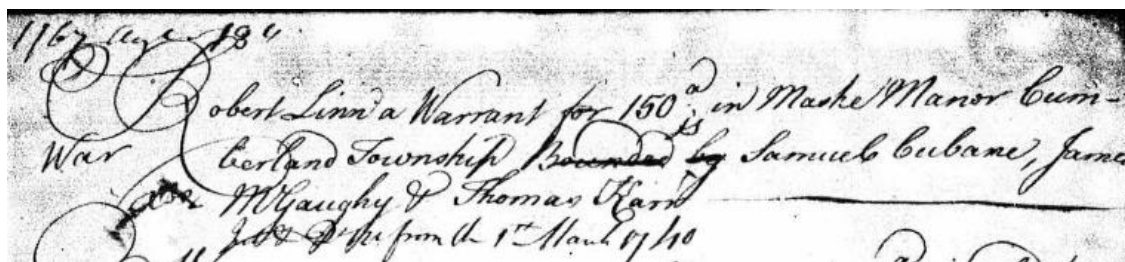 1767 18th
Robert Linn a Warrant for 150 a in Maske Manor Cum-
War berland Township Bounded by Samuel Cubane, James
McGaughy & Thomas Karr
Int & from the 1st March 1740